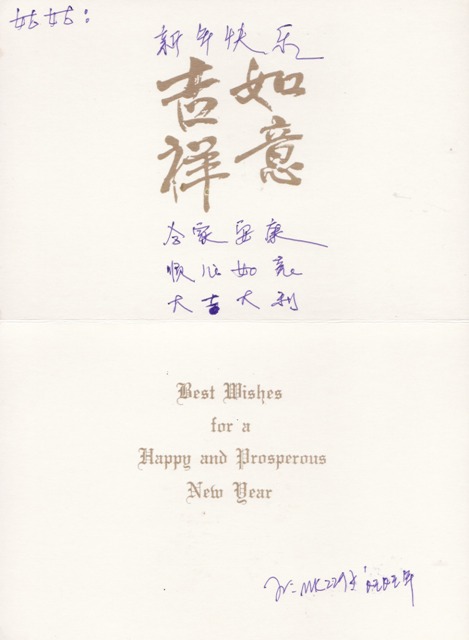 姑姑:
新年快乐
吉祥
如意
合家安康
顺心如意
大吉大利
Best Wishes
for a
Happy and Prosperous
New Year
旺旺年